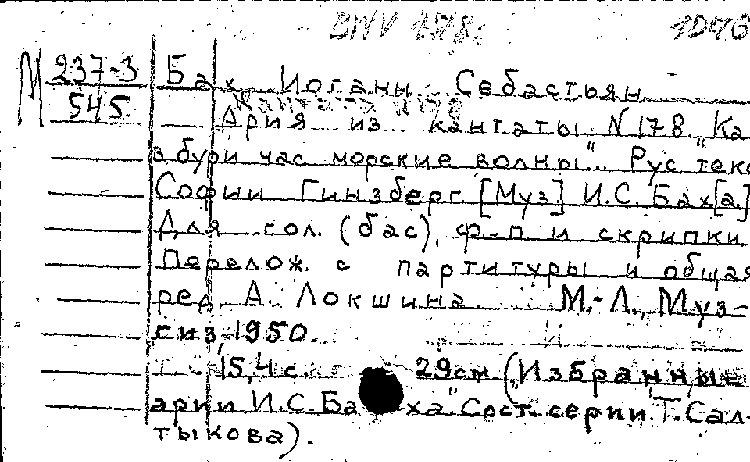 BWV 178.
М 237-3 Бах, Иоганн Себастьян
545 Кантата N 178
Ария из кантаты N 178 „Ка
в бури час морские волны". Рус текс
Софии Гинзберг [Муз] И.С. Бах[а.]
Для гол. (бас), ф-п и скрипки
Перелож. с партитуры и общая
ред. А. Локшина. М.-Л., Муз-
гиз, 1950.
15,4 с. 29см („Избранные
арии И.С. Баха" Сост. серии Т. Сал-
тыкова).